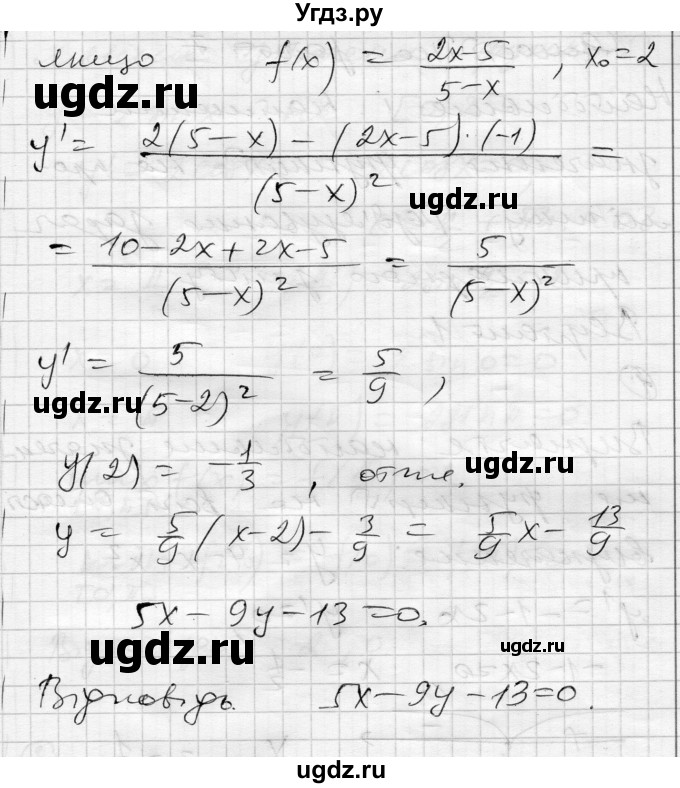 Угдз.ру
якщо f(x) = (2x-5)/(5-x), x₀=2
ugdz.ru
y' = (2(5-x) - (2x-5)·(-1))/(5-x)² =
ugdz.ru
= (10-2x+2x-5)/(5-x)² = 5/(5-x)²
y' = 5/(5-2)² = 5/9,
ugdz.ru
y(2) = -1/3, отже,
ugdz.ru
y = 5/9(x-2) - 3/9 = 5/9x - 13/9
5x-9y-13=0.
ugdz.ru
ugdz.ru
Відповідь 5x-9y-13=0.
ugdz.ru
ugdz.ru